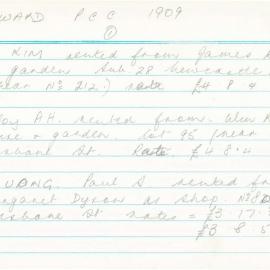 WARD P C C 1909
①
KIM rented from James
garden Sub. 28 Newcastle
near No 212.) rate £4 8 4
Hoy A.H. rented from. Wm
& garden. Lot 95 (near
Brisbane St Rate. £4 8.4
WONG. Paul S rented fr
Margaret Dyson as shop. No 8
Brisbane St rates = £3.17.
£3 8.5